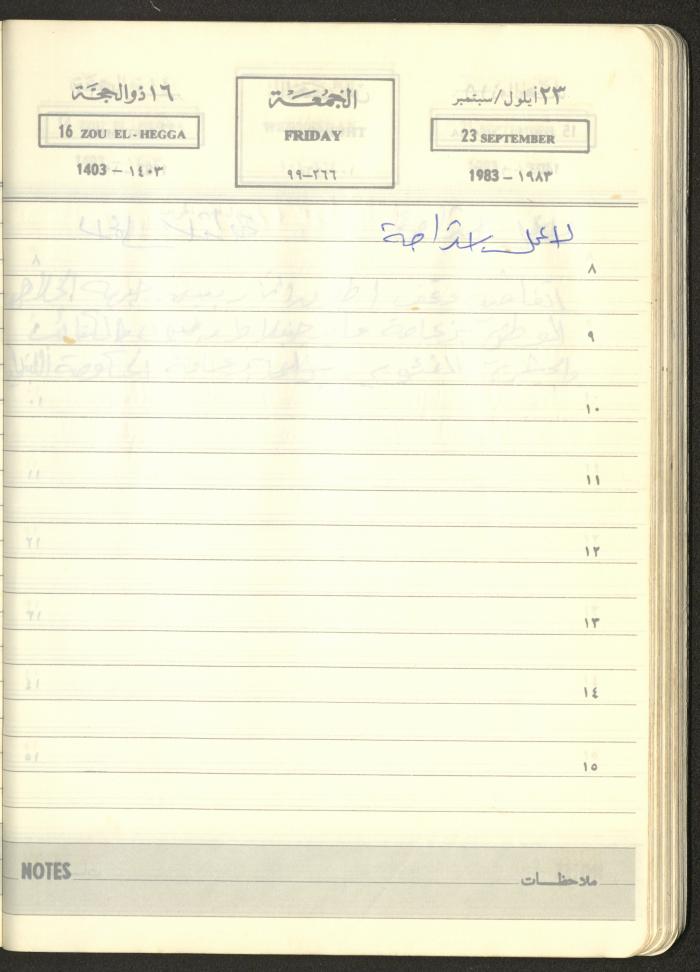 ١٦ ذوالحجَّة
الجُمُعَـة
٢٣ أيلول/سبتمبر
16 ZOU EL-HEGGA
FRIDAY
23 SEPTEMBER
1403 - ١٤٠٣
٩٩-٢٦٦
1983 - ١٩٨٣
لا عمل استراحة
٨
٩
١٠
١١
١٢
١٣
١٤
١٥
NOTES
ملاحظـات